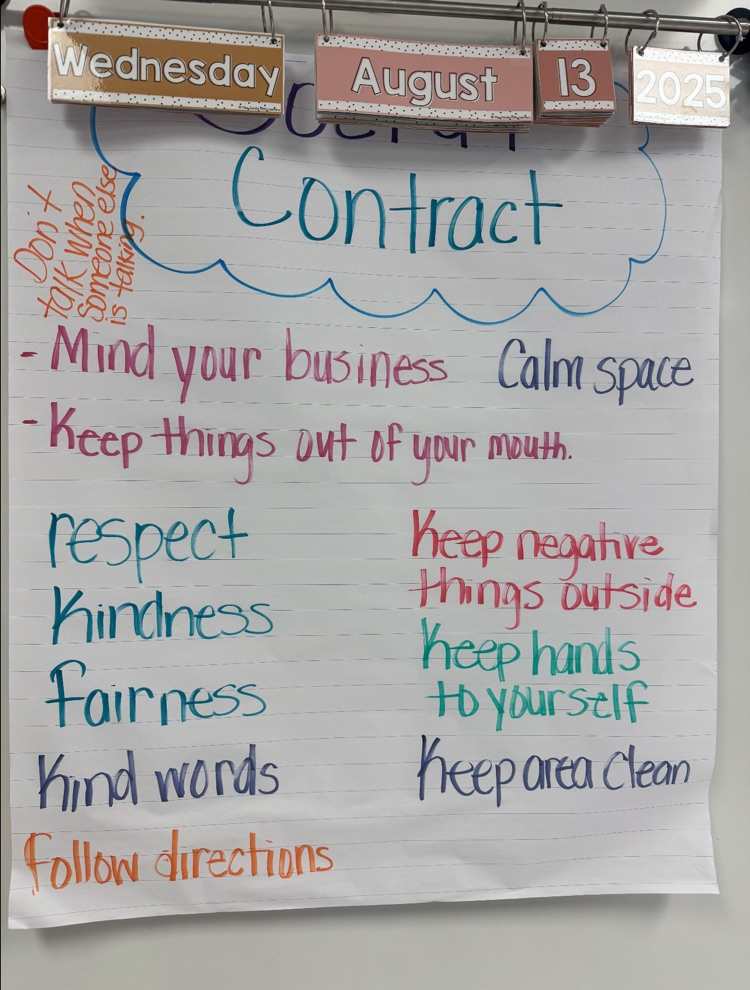 Wednesday August 13 2025
Contract
Don't
talk when
someone else
is talking.
- Mind your business
Calm space
- Keep things out of your mouth.
respect
Kindness
fairness
Kind words
follow directions
Keep negative
things outside
Keep hands
to yourself
Keep area clean